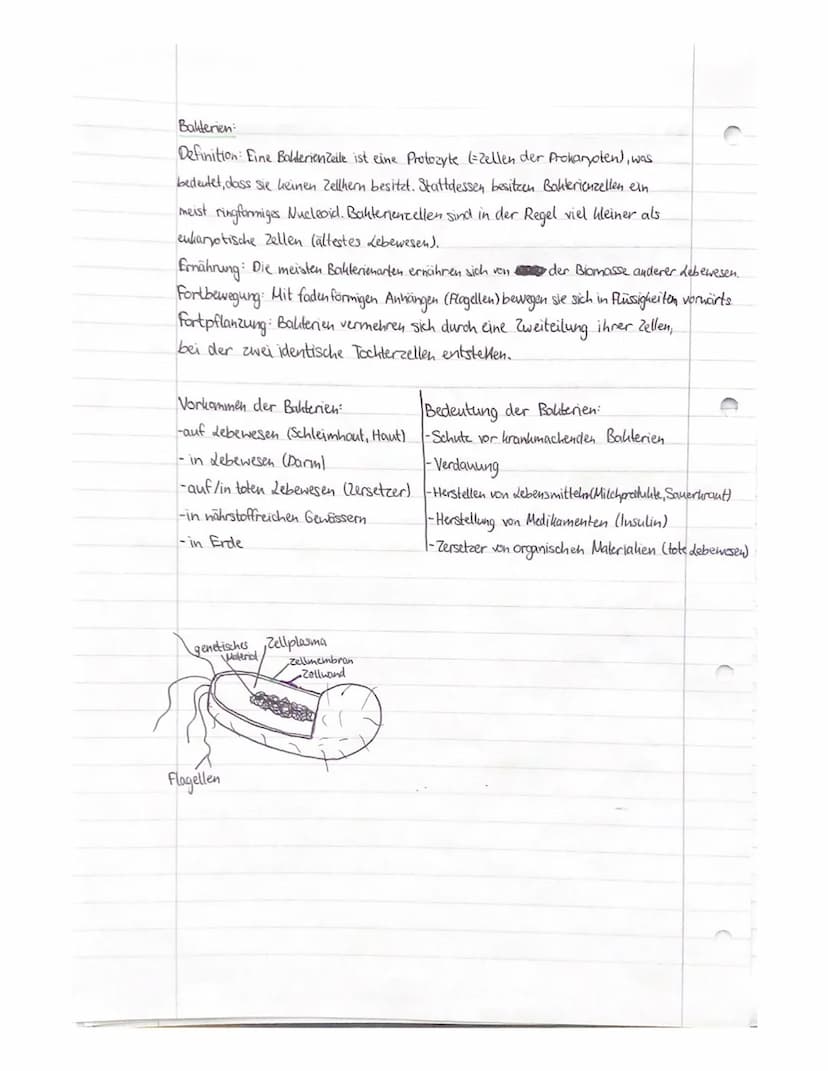 Bakterien:
Definition: Eine Bakterienzelle ist eine Protozyte (=Zellen der Prokaryoten), was
bedeutet, dass sie keinen Zellkern besitzt. Stattdessen besitzen Bakterienzellen ein
meist ringförmiges Nucleoid. Bakterienzellen sind in der Regel viel kleiner als
eukaryotische Zellen (ältestes Lebewesen).
Ernährung: Die meisten Bakterienarten ernähren sich von der Biomasse anderer Lebewesen.
Fortbewegung: Mit fadenförmigen Anhängen (Flagellen) bewegen sie sich in Flüssigkeiten vorwärts
Fortpflanzung: Bakterien vermehren sich durch eine Zweiteilung ihrer Zellen,
bei der zwei identische Tochterzellen entstehen.
Vorkommen der Bakterien:
-auf Lebewesen (Schleimhaut, Haut)
- in Lebewesen (Darm)
-auf/in toten Lebewesen (Zersetzer)
-in nährstoffreichen Gewässern
- in Erde
Bedeutung der Bakterien:
-Schutz vor krankmachenden Bakterien
- Verdauung
-Herstellen von Lebensmitteln (Milchprodukte, Sauerkraut)
-Herstellung von Medikamenten (Insulin)
-Zersetzer von organischen Materialien (tote Lebewesen)
genetisches
Material
Zellplasma
Zellmembran
Zellwand
Flagellen